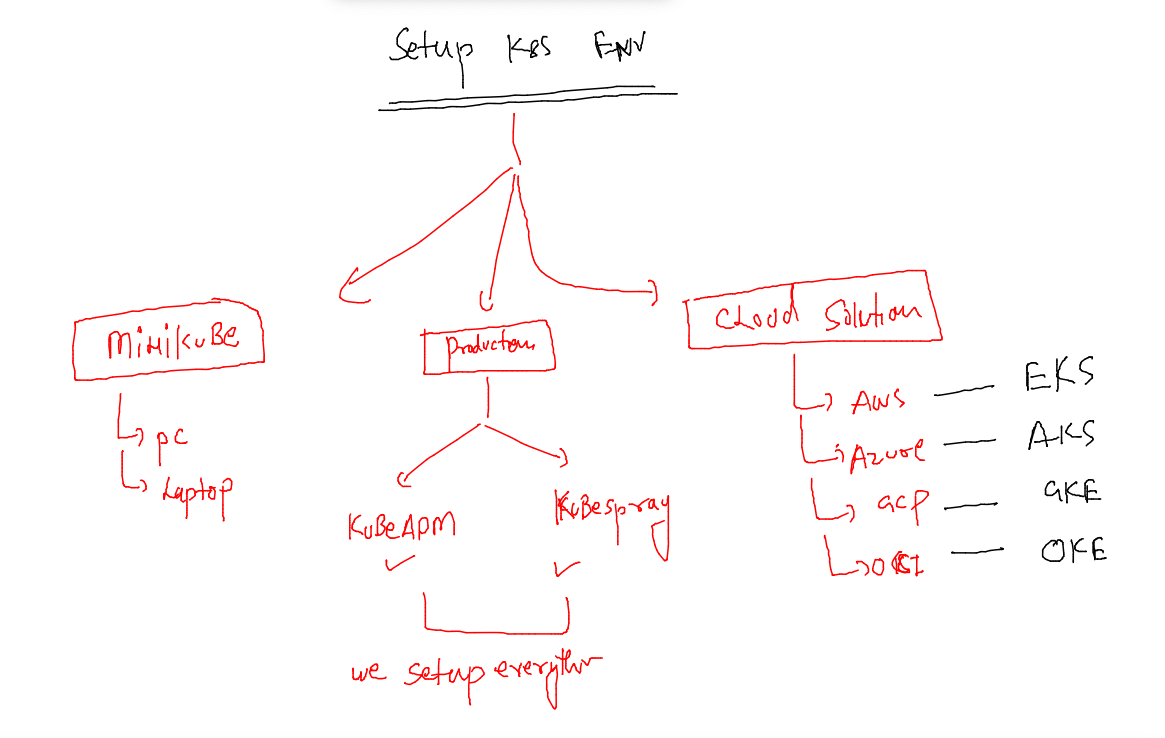 Setup K8S ENV
MiNikuBe
pc
Laptop
Production
KuBeADM
KuBespray
we setup everythin
CLoud Solution
AWS — EKS
Azure — AKS
GCP — GKE
OCI — OKE